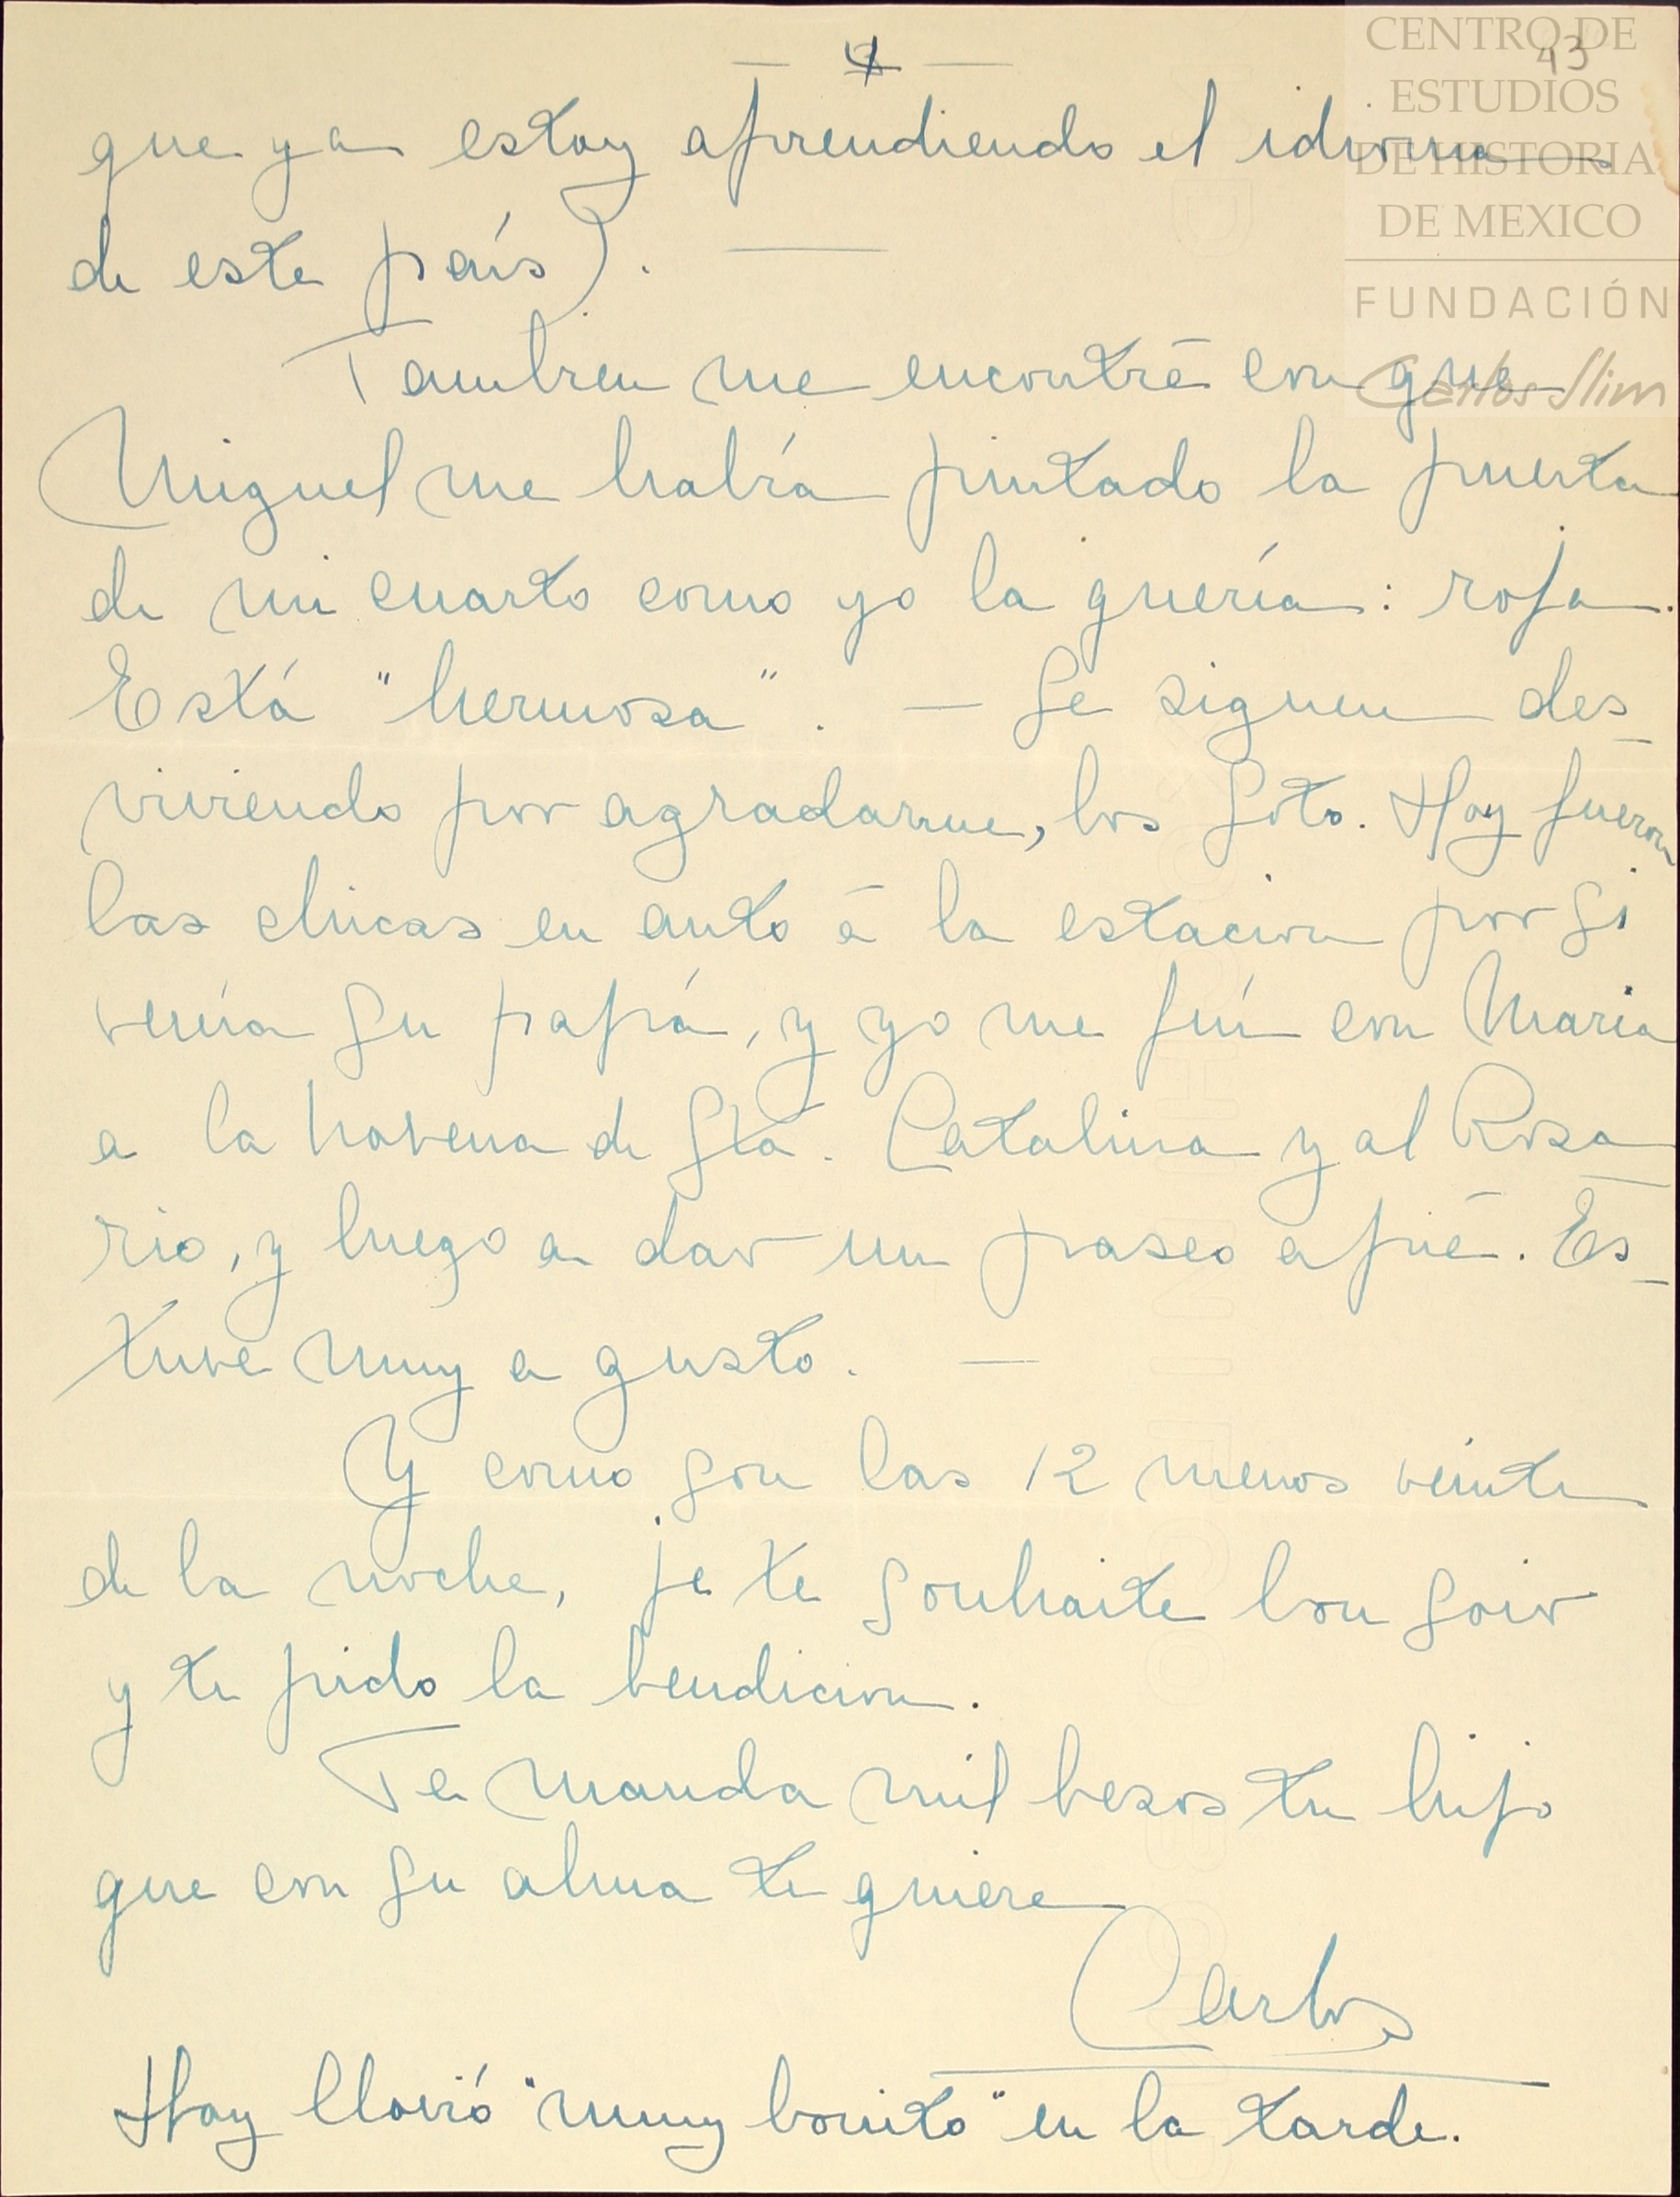 — 4 —
43
que ya estoy aprendiendo el idioma
de este país). —
Tambien me encontré con que
Miguel me había pintado la puerta
de mi cuarto como yo la quería: roja.
Está "hermosa". — Se siguen des-
viviendo por agradarme, los Soto. Hoy fueron
las chicas en auto á la estacion por si
venía su papá, y yo me fuí con María
a la novena de Sta. Catalina y al Rosa-
rio, y luego a dar un paseo a pié. Es-
tuve muy a gusto. —
Y como son las 12 menos veinte
de la noche, je te souhaite bon soir
y te pido la bendicion.
Te manda mil besos tu hijo
que con su alma te quiere
Carlos
Hoy llovió "muy bonito" en la tarde.
CENTRO DE
ESTUDIOS
DE HISTORIA
DE MEXICO
FUNDACIÓN
Carlos Slim